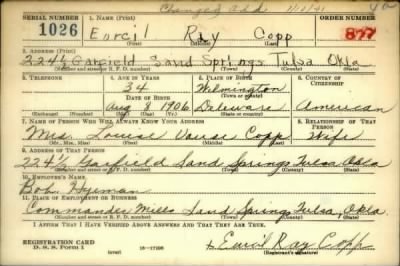 Changed Add
SERIAL NUMBER 1. NAME (Print) ORDER NUMBER
1026 Ray Copp 877
(First) (Middle) (Last)
2. ADDRESS (Print)
224½ Garfield Sand Springs Tulsa Okla
(Number and street or R. F. D. number) (Town) (County) (State)
3. TELEPHONE 4. AGE IN YEARS 5. PLACE OF BIRTH 6. COUNTRY OF CITIZENSHIP
34 Wilmington
DATE OF BIRTH (Town or county)
Aug 8 1906 Delaware American
(Exchange) (No.) (Mo.) (Day) (Yr.) (State or country)
7. NAME OF PERSON WHO WILL ALWAYS KNOW YOUR ADDRESS 8. RELATIONSHIP OF THAT PERSON
Mrs. Louise Copp Wife
(Mr., Mrs., Miss) (First) (Middle) (Last)
9. ADDRESS OF THAT PERSON
224½ Garfield Sand Springs Tulsa, Okla
(Number and street or R. F. D. number) (Town) (County) (State)
10. EMPLOYER'S NAME
Bob Hyman
11. PLACE OF EMPLOYMENT OR BUSINESS
Commander Mills Sand Springs Tulsa, Okla.
(Number and street or R. F. D. number) (Town) (County) (State)
I AFFIRM THAT I HAVE VERIFIED ABOVE ANSWERS AND THAT THEY ARE TRUE.
REGISTRATION CARD
D. S. S. Form 1 (over) Ray Copp
(Registrant's signature)